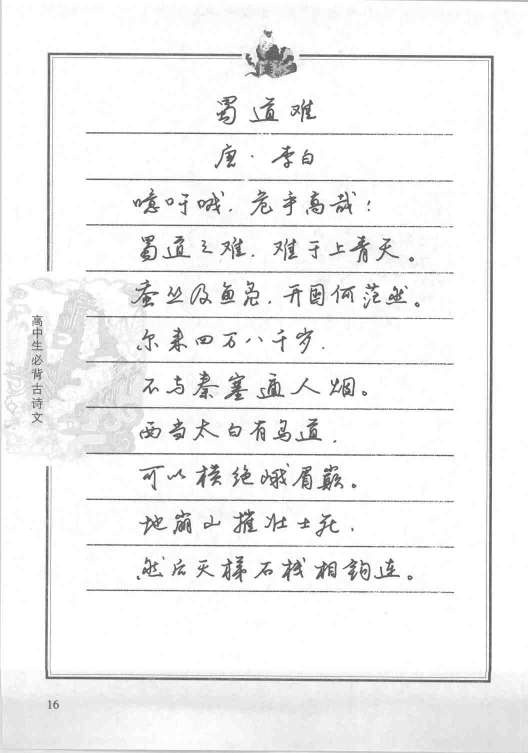 蜀道难
唐·李白
噫吁嚱，危乎高哉！
蜀道之难，难于上青天。
蚕丛及鱼凫，开国何茫然。
尔来四万八千岁，
不与秦塞通人烟。
西当太白有鸟道，
可以横绝峨眉巅。
地崩山摧壮士死，
然后天梯石栈相钩连。
高中生必背古诗文
16